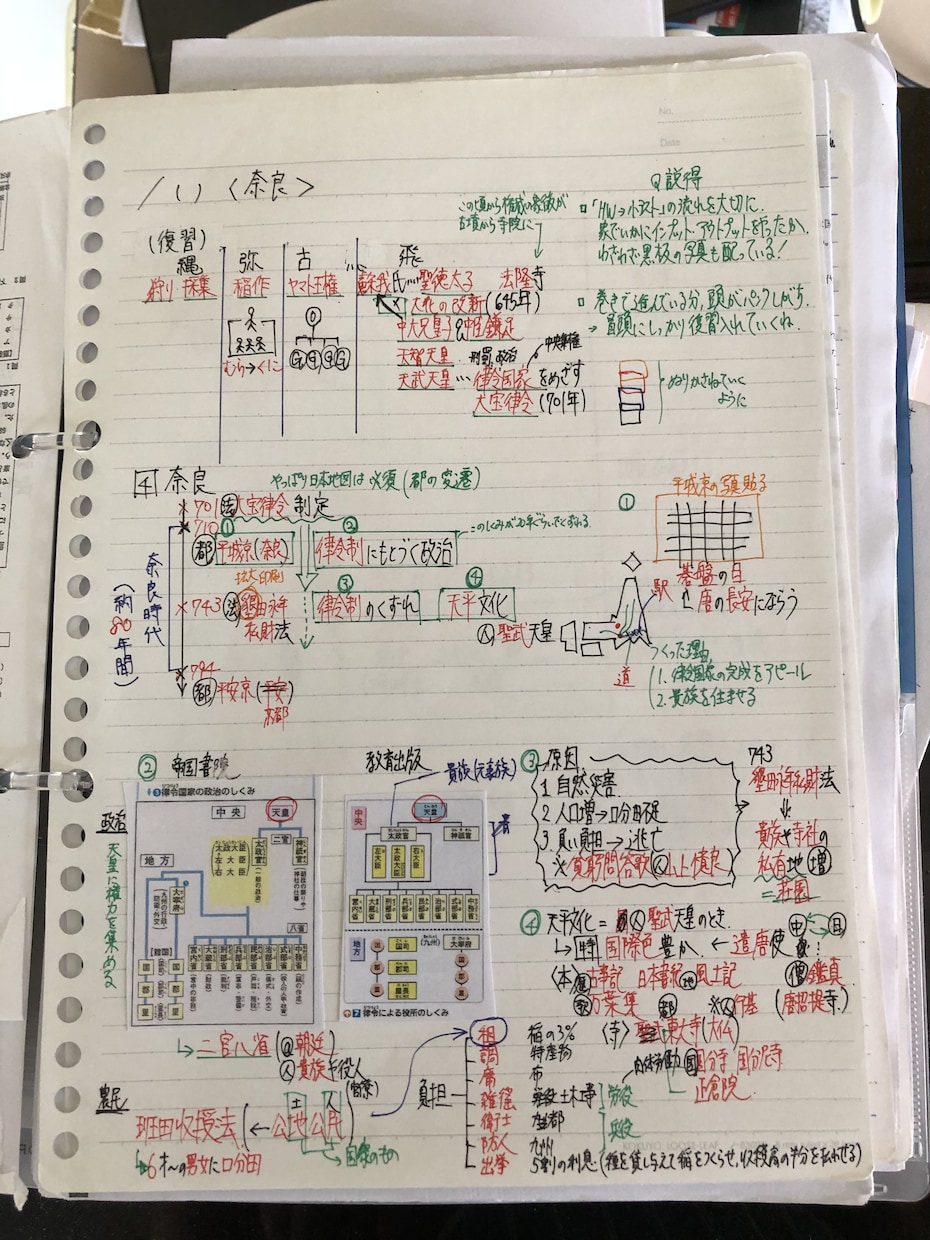 No.
Date
/ い 〈奈良〉
この頃から権威の象徴が
古墳から寺院に
Q 説得
「HW→小テスト」の流れを大切に。
家でいかにインプット・アウトプットをやったか。
わざわざ黒板の写真も配っている！
巻きで進んでいる分、頭がパンクしがち。
→ 冒頭にしっかり復習入れていくね。
ぬりかさねていく
ように
(復習)
縄
狩り 採集
弥
稲作
むら→くに
古
ヤマト王権
飛
蘇我氏…聖徳太子 法隆寺
大化の改新(645年)
中大兄皇子&中臣鎌足
天智天皇 刑罰、政治 中央集権
天武天皇…律令国家をめざす
大宝律令(701年)
4 奈良
やっぱり日本地図は必須(都の変遷)
701 法 大宝律令 制定
710
① 都 平城京(奈良)
② 律令制にもとづく政治
拡大印刷
743 法 墾田永年
私財法
③ 律令制のくずれ
④ 天平文化
人 聖武天皇
794
都 平安京(平安)
京都
奈良時代
(約80年間)
①
平城京の写真貼る
碁盤の目
唐の長安にならう
駅
道
つくった理由
1. 律令国家の完成をアピール
2. 貴族を住ませる
② 帝国書院
③律令国家の政治のしくみ
中央
天皇
二官
神祇官
太政官
太政大臣
左大臣
右大臣
地方
大宰府
八省
[諸国]
宮内省
大蔵省
刑部省
兵部省
民部省
治部省
式部省
中務省
国
郡
里
教育出版
貴族(元豪族)
中央
天皇
太政官
神祇官
左大臣
太政大臣
右大臣
地方
国司
(九州)
大宰府
郡司
里長
7 律令による役所のしくみ
政治
天皇に権力を集める
→二官八省(@朝廷)
人 貴族や役人
農民
班田収授法 ← 公地公民
土
人
国家のもの
6才〜の男女に口分田
③ 原因
1. 自然災害
2. 人口増→口分田不足
3. 重い負担→逃亡
※貧窮問答歌 人 山上憶良
743
墾田永年私財法
貴族や寺社の
私有地 増
=荘園
④ 天平文化 = 人 聖武天皇のとき
→ 特 国際色豊か ← 遣唐使
中
日
(本) 歴 古事記 日本書紀 地 風土記
歌 万葉集
僧 鑑真
(唐招提寺)
※人 行基
〈寺〉東大寺(大仏)
国 国分寺 国分尼寺
正倉院
負担
租 稲の3%
調 特産物
庸 布
雑徭 土木等
労役
衛士
兵役
防人 九州
出挙 5割の利息(種を貸し与えて稲をつくらせ、収穫高の半分を払わせる)